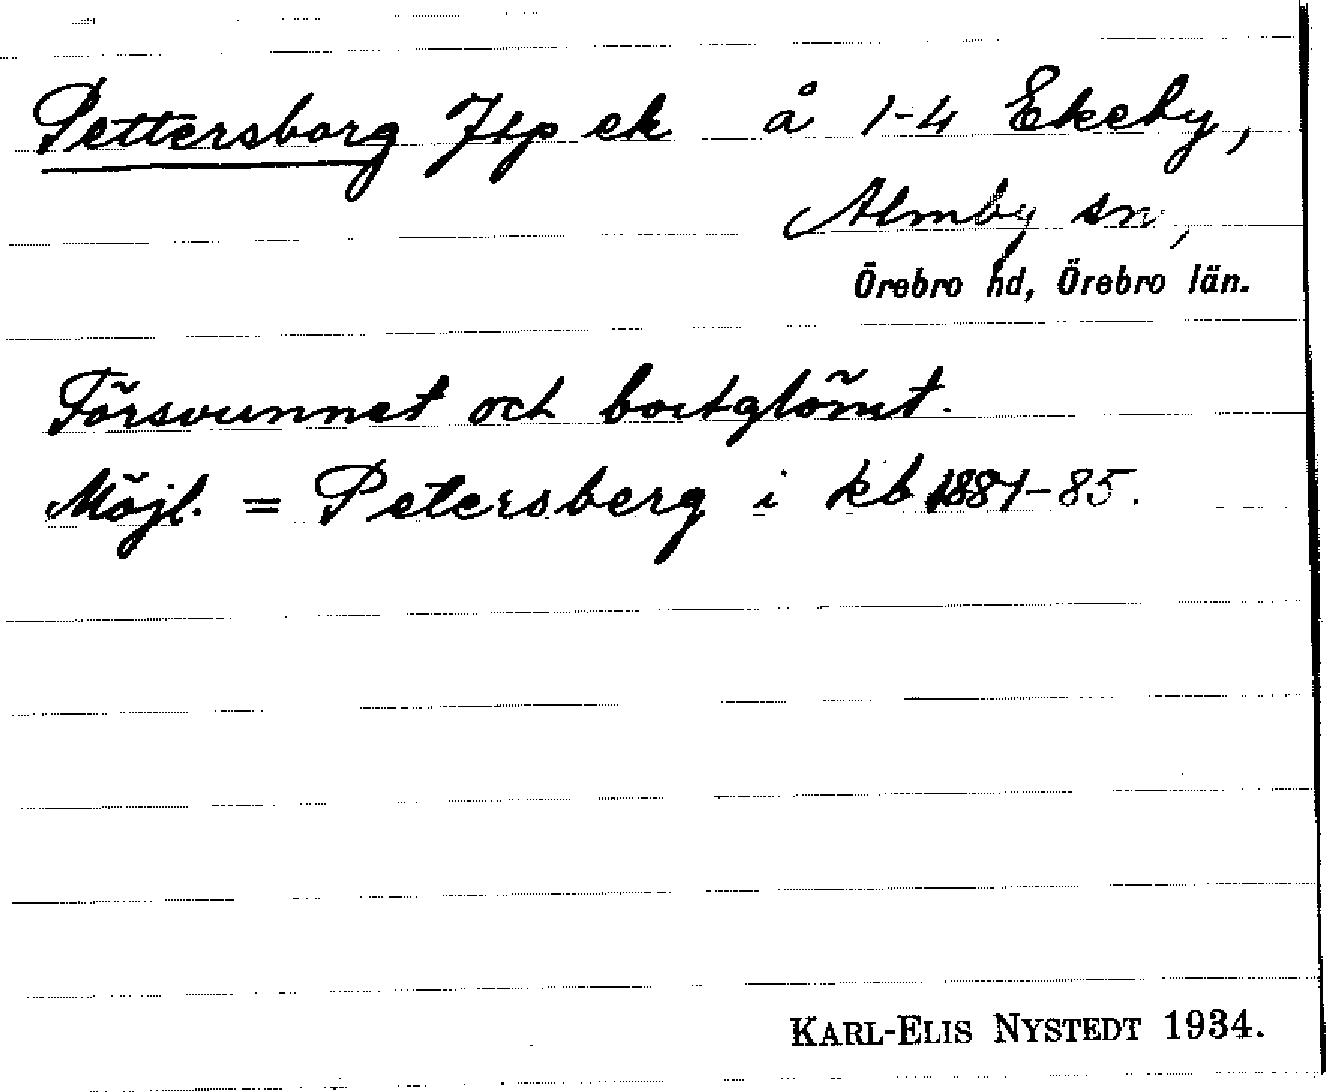 Pettersborg Jtp ek å 1-4 Ekeby,
Almby sn,
Örebro hd, Örebro län.
Försvunnet och bortglömt.
Möjl. = Petersberg i kb 1881-85.
KARL-ELIS NYSTEDT 1934.